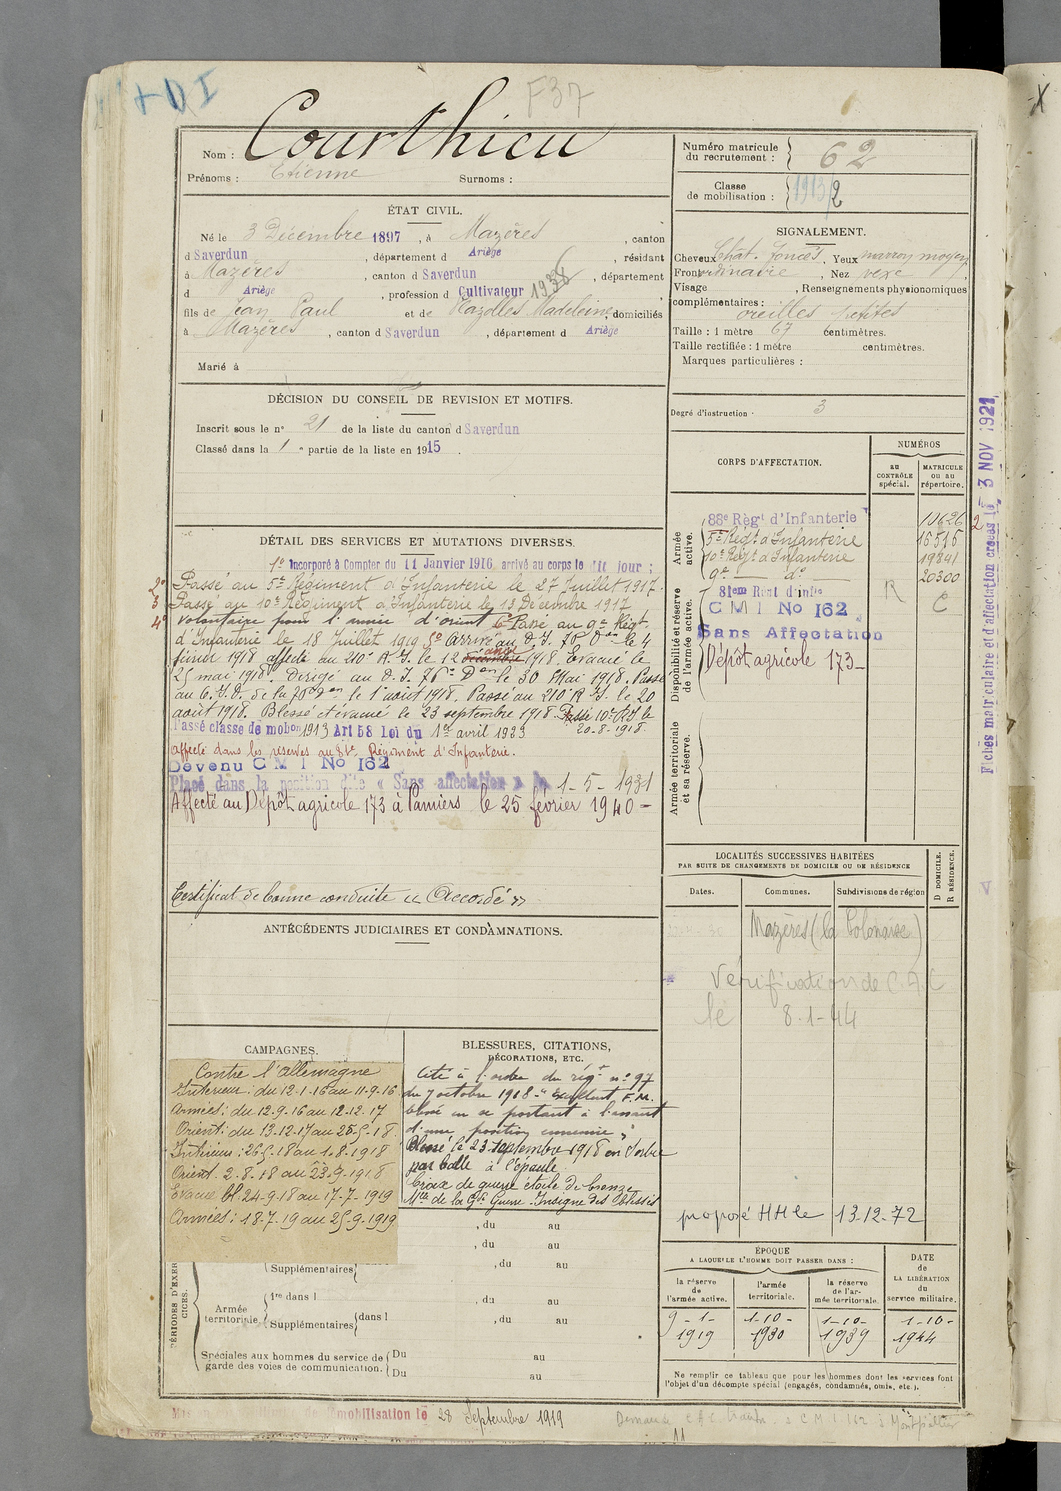 +DI
F37
Nom : Courthieu
Prénoms : Etienne Surnoms :
ÉTAT CIVIL.
Né le 3 Décembre 1897, à Mazères, canton
d Saverdun, département d Ariège, résidant
à Mazères, canton d Saverdun, département
d Ariège, profession d Cultivateur 1936
fils de Jean Paul et de Mazelles Madeleine, domiciliés
à Mazères, canton d Saverdun, département d Ariège
Marié à
DÉCISION DU CONSEIL DE REVISION ET MOTIFS.
Inscrit sous le n° 21 de la liste du canton d Saverdun
Classé dans la 1e partie de la liste en 1915.
DÉTAIL DES SERVICES ET MUTATIONS DIVERSES.
1° Incorporé à Compter du 11 Janvier 1916, arrivé au corps le dit jour ;
2° Passé au 5e Régiment d'Infanterie le 27 Juillet 1917.
3° Passé au 10e Régiment d'Infanterie le 13 Décembre 1917
4° Volontaire pour l'armée d'Orient Passé au 9e Régt
d'Infanterie le 18 Juillet 1919 Arrivé au D. I. 76e Don le 4
février 1918 affecté au 210e R. I. le 12 décembre mars 1918. Evacué le
25 mai 1918. Dirigé au D. I. 76e Don le 30 Mai 1918. Passé
au C. I. D. de la 76e Don le 1er août 1918. Passé au 210e R I. le 20
août 1918. Blessé et évacué le 23 septembre 1918. Passé 10e R.I. le
20-8-1918.
Passé classe de mobon 1913 Art 58 Loi du 1er avril 1923
affecté dans les réserves au 81e Régiment d'Infanterie.
Devenu C M I No 162
Placé dans la position dite « Sans affectation » le 1-5-1931
Affecté au Dépôt agricole 173 à Pamiers le 25 février 1940 -
Certificat de bonne conduite « Accordé »
ANTÉCÉDENTS JUDICIAIRES ET CONDAMNATIONS.
CAMPAGNES.
Contre l'allemagne
Intérieur : du 12-1-16 au 11-9-16
Armées : du 12-9-16 au 12-12-17
Orient : du 13-12-17 au 25-5-18
Intérieur : 26-5-18 au 1-8-1918
Orient. 2-8-18 au 23-9-1918
Evacué bl. 24-9-18 au 17-7-1919
Armées : 18-7-19 au 25-9-1919
BLESSURES, CITATIONS,
DÉCORATIONS, ETC.
Cité à l'ordre du régt n° 97
du 7 octobre 1918 " Excellent F. M.
blessé en se portant à l'assaut
d'une position ennemie "
Blessé le 23 septembre 1918 en Serbie
par balle à l'épaule.
Croix de guerre étoile de bronze
Mlle de la Gde Guerre. Insigne des blessés
, du au
, du au
Supplémentaires , du au
PÉRIODES D'EXERCICES.
Armée
territoriale
1re dans l , du au
Supplémentaires dans l , du au
Spéciales aux hommes du service de
garde des voies de communication.
Du au
Du au
28 Septembre 1919
Numéro matricule
du recrutement : 62
Classe
de mobilisation : 1913/2
SIGNALEMENT.
Cheveux Chat. foncés, Yeux marron moyen
Front ordinaire, Nez vexe
Visage , Renseignements physionomiques
complémentaires :
oreilles petites
Taille : 1 mètre 67 centimètres.
Taille rectifiée : 1 mètre centimètres.
Marques particulières :
Degré d'instruction : 3
CORPS D'AFFECTATION.
NUMÉROS
au
CONTRÔLE
spécial.
MATRICULE
ou au
répertoire.
Armée
active.
88e Régt d'Infanterie 10626
5e Régt d'Infanterie 15515
10e Régt d'Infanterie 19841
9e — do — 20300
Disponibilité et réserve
de l'armée active.
81em Regt d'infie R C
C M I No 162
Sans Affectation
Dépôt agricole 173 -
Armée territoriale
et sa réserve.
Fiches matriculaire et d'affectation créées le 3 NOV 1921
LOCALITÉS SUCCESSIVES HABITÉES
PAR SUITE DE CHANGEMENTS DE DOMICILE OU DE RÉSIDENCE
D DOMICILE.
R RÉSIDENCE.
Dates. Communes. Subdivisions de région
Mazères (la Polonaise)
Vérification de C.A.C
le 8-1-44
proposé HH le 13-12-72
ÉPOQUE
A LAQUELLE L'HOMME DOIT PASSER DANS :
DATE
de
LA LIBÉRATION
du
service militaire.
la réserve
de
l'armée active.
l'armée
territoriale.
la réserve
de l'ar-
mée territoriale.
9-1-1919
1-10-1930
1-10-1939
1-10-1944
Ne remplir ce tableau que pour les hommes dont les services font
l'objet d'un décompte spécial (engagés, condamnés, omis, etc.).